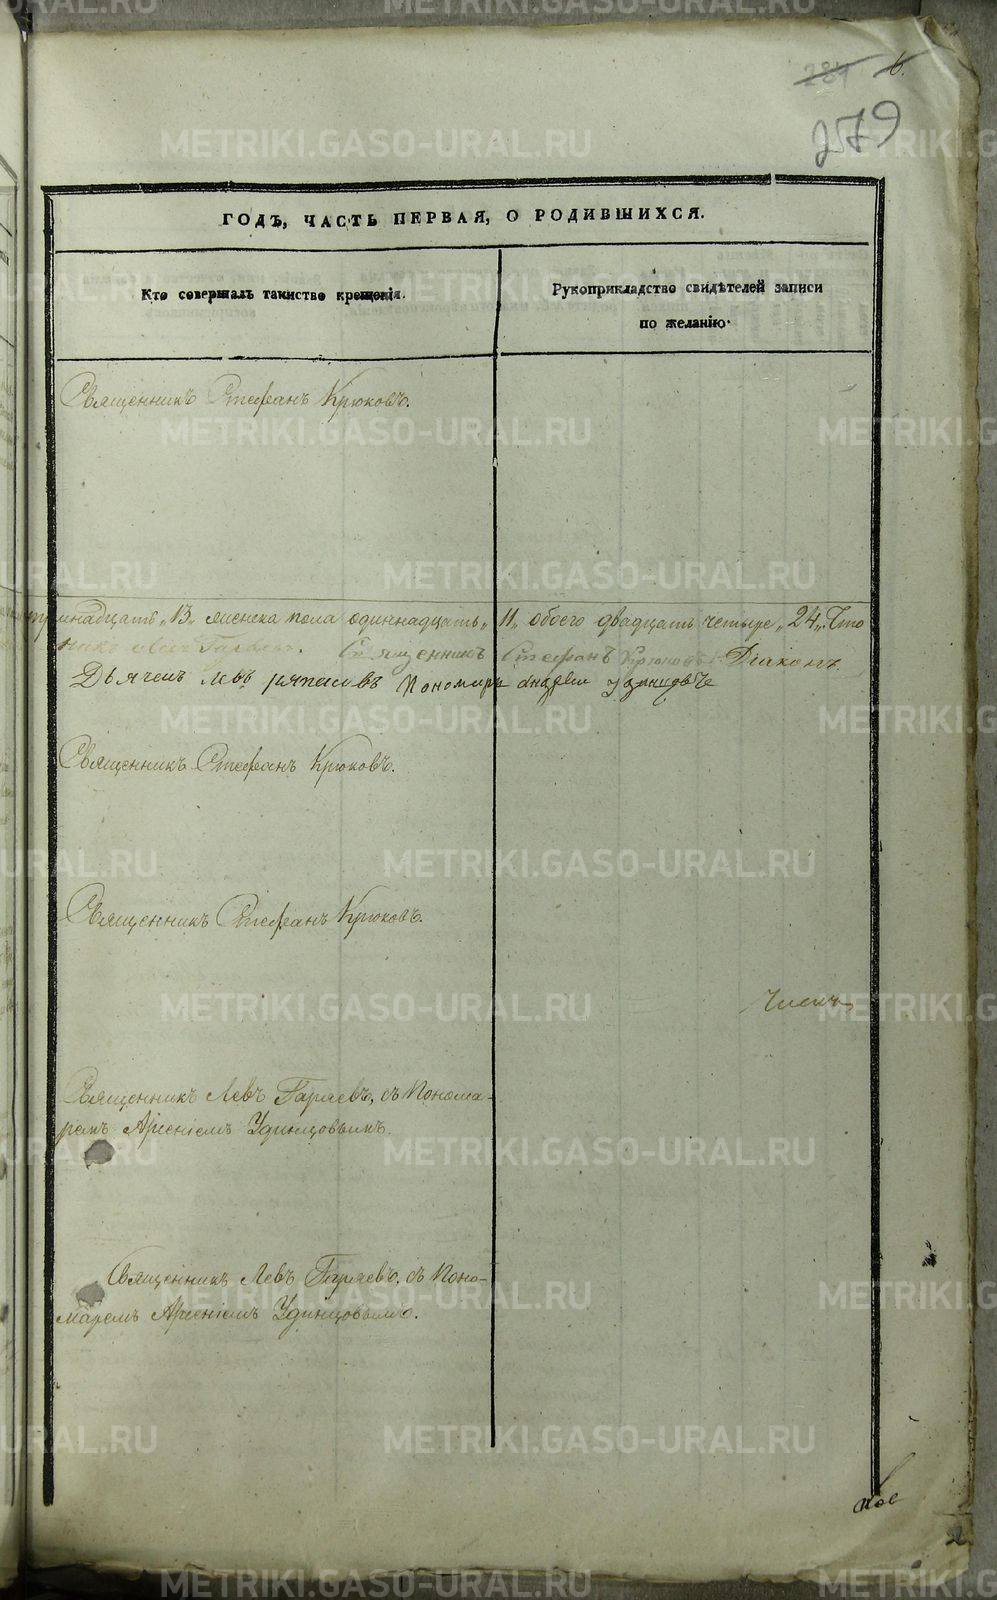 284 6.
279
ГОДЪ, ЧАСТЬ ПЕРВАЯ, О РОДИВШИХСЯ.
Кто совершалъ таинство крещенія.
Рукоприкладство свидѣтелей записи
по желанію.
Священникъ Стефанъ Крюковъ.
тринадцать „13„ женска пола одиннадцать„ 11„ обоего двадцать четыре „24„ Что
Священникъ Стефанъ Крюковъ Діаконъ
Дьячекъ Левъ Пономарь Андрей
Священникъ Стефанъ Крюковъ.
Священникъ Стефанъ Крюковъ.
Священникъ Левъ Гаряевъ, съ Понома-
ремъ Арсеніемъ Удинцовымъ.
Священникъ Левъ Гаряевъ, съ Поно-
маремъ Арсеніемъ Удинцовымъ.
METRIKI.GASO-URAL.RU